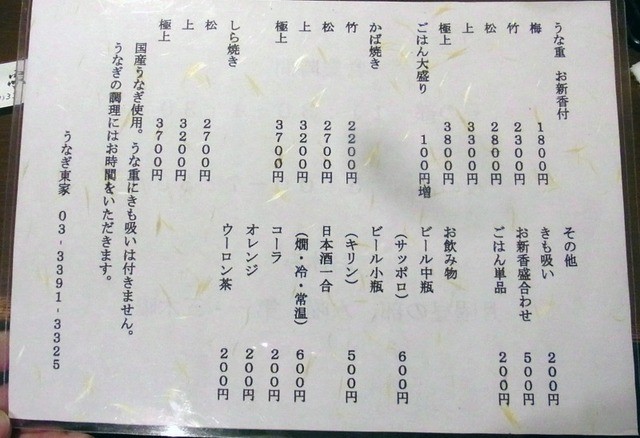 うな重 お新香付
梅 1800円
竹 2300円
松 2800円
上 3300円
極上 3800円
ごはん大盛り 100円増
かば焼き
竹 2200円
松 2700円
上 3200円
極上 3700円
しら焼き
松 2700円
上 3200円
極上 3700円
国産うなぎ使用。うな重にきも吸いは付きません。
うなぎの調理にはお時間をいただきます。
その他
きも吸い 200円
お新香盛合わせ 500円
ごはん単品 200円
お飲み物
ビール中瓶
(サッポロ) 600円
ビール小瓶
(キリン) 500円
日本酒一合
(燗・冷・常温) 600円
コーラ 200円
オレンジ 200円
ウーロン茶 200円
うなぎ東家 03-3391-3325